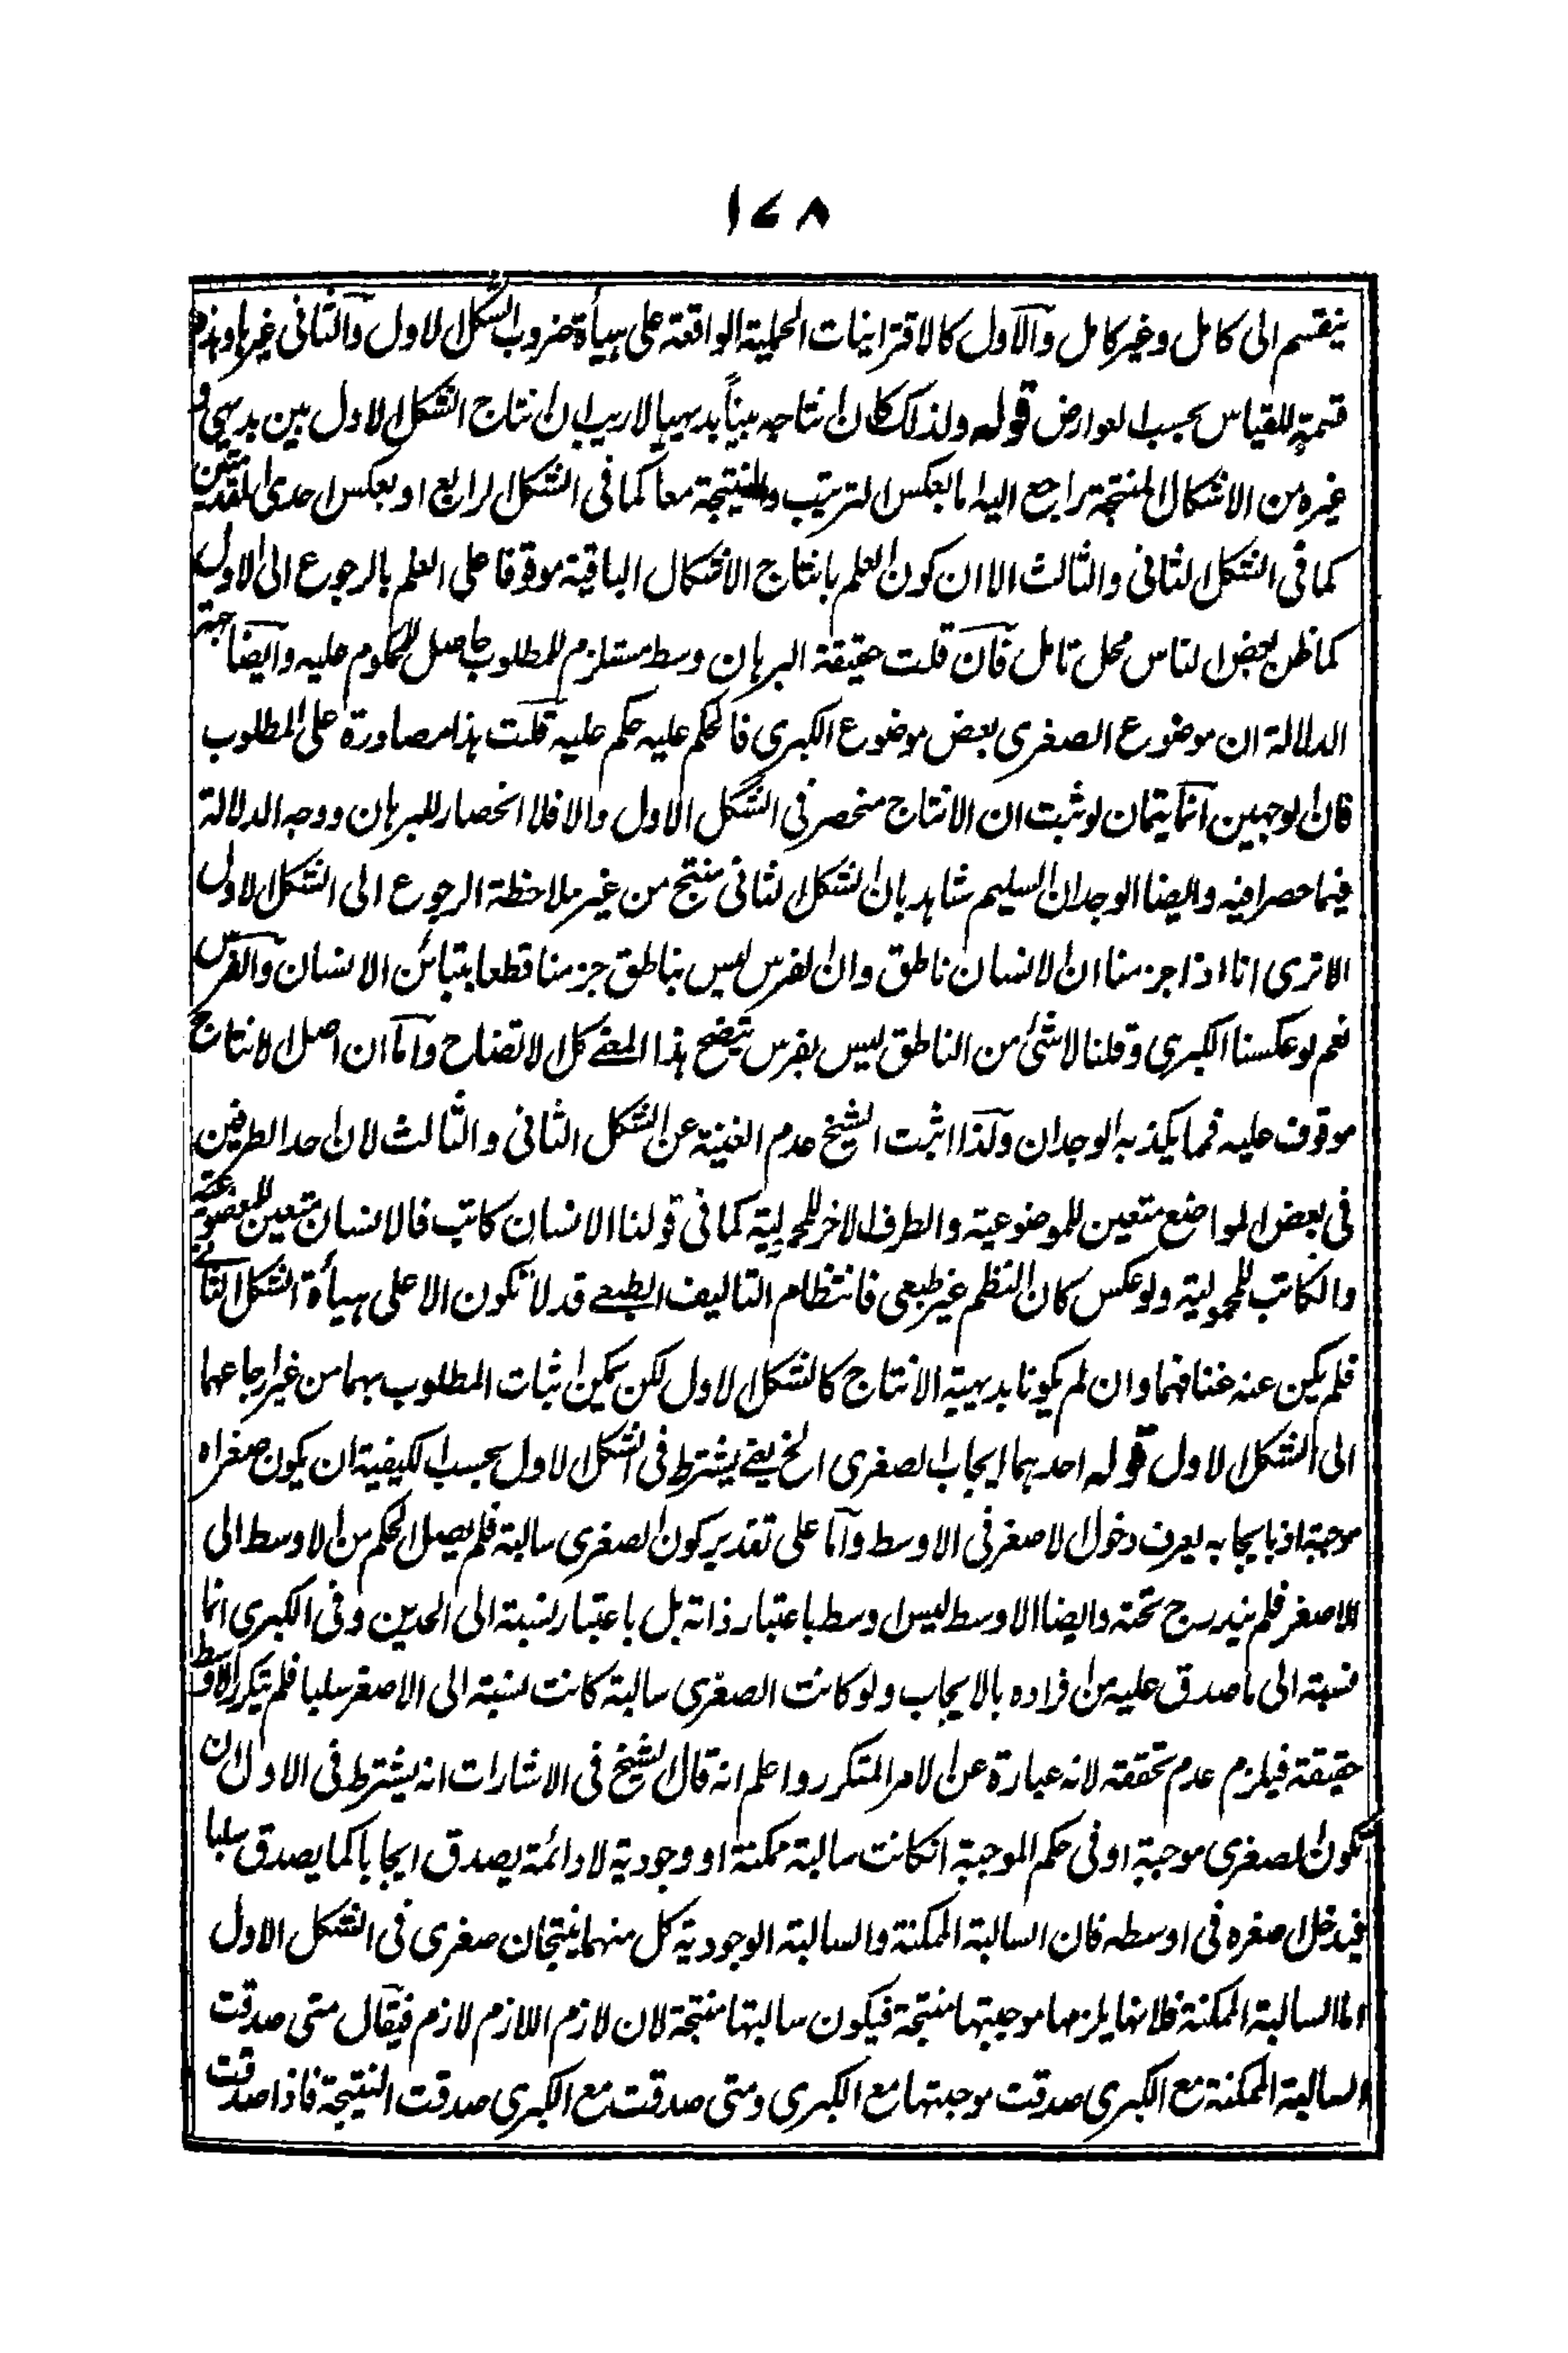 ١٧٨
ينقسم الى كامل وغير كامل والاول كالاقترانيات الحملية الواقعة على هيأة ضروب الشكل الاول والثانى غيرها وهذه
قسمة للقياس بحسب العوارض قوله ولذلك كان انتاجه بيناً بديهيا لاريب ان انتاج الشكل الاول بين بديهى و
غيره من الاشكال المنتجة تراجع اليه اما بعكس الترتيب والنتيجة معا كما فى الشكل الرابع او بعكس احدى المقدمتين
كما فى الشكل الثانى والثالث الا ان كون العلم بانتاج الاشكال الباقية موقوفا على العلم بالرجوع الى الاول
كما ظن بعض الناس محل تامل فان قلت حقيقة البرهان وسط مستلزم للمطلوب حاصل للمحكوم عليه وايضا جهة
الدلالة ان موضوع الصغرى بعض موضوع الكبرى فالحكم عليه حكم عليه قلت هذا مصادرة على المطلوب
فان الوجهين انما يتمان لو ثبت ان الانتاج منحصر فى الشكل الاول والا فلا انحصار للبرهان ووجه الدلالة
فيما حصرا فيه وايضا الوجدان السليم شاهد بان الشكل الثانى منتج من غير ملاحظة الرجوع الى الشكل الاول
الا ترى انا اذا جزمنا ان الانسان ناطق وان الفرس ليس بناطق جزمنا قطعا بتبائن الانسان والفرس
نعم لو عكسنا الكبرى وقلنا لا شئ من الناطق ليس بفرس يتضح هذا المعنے كل الاتضاح واما ان اصل الانتاج
موقوف عليه فمما يكذبه الوجدان ولذا اثبت الشيخ عدم الغنية عن الشكل الثانى والثالث لان احد الطرفين
فى بعض المواضع متعين للموضوعية والطرف الاخر للمحمولية كما فى قولنا الانسان كاتب فالانسان متعين للموضوعية
والكاتب للمحمولية ولو عكس كان النظم غير طبعى فانتظام التاليف الطبعے قد لا تكون الا على هيأة الشكل الثانے
فلم يكن عنه غنا فهما وان لم يكونا بديهية الانتاج كالشكل الاول لكن يمكن اثبات المطلوب بهما من غير ارجاعهما
الى الشكل الاول قوله احدهما ايجاب الصغرى الخ يعنے يشترط فى الشكل الاول بحسب الكيفية ان يكون صغراه
موجبة اذ بايجابه يعرف دخول الاصغر فى الاوسط واما على تقدير كون الصغرى سالبة فلم يصل الحكم من الاوسط الى
الاصغر فلم يندرج تحته وايضا الاوسط ليس وسط باعتبار ذاته بل باعتبار نسبته الى الحدين وفى الكبرى انما
نسبته الى ما صدق عليه من افراده بالايجاب ولو كانت الصغرى سالبة كانت نسبته الى الاصغر سلبا فلم يتكرر الاوسط
حقيقة فيلزم عدم تحققه لانه عبارة عن الامر المتكرر واعلم انه قال الشيخ فى الاشارات انه يشترط فى الاول ان
تكون الصغرى موجبة او فى حكم الموجبة انكانت سالبة ممكنة او وجودية لا دائمة يصدق ايجابا كما يصدق سلبا
فيدخل اصغره فى اوسطه فان السالبة الممكنة والسالبة الوجودية كل منهما ينتجان صغرى فى الشكل الاول
اما السالبة الممكنة فلانها يلزمها موجبتها منتجة فيكون سالبتها منتجة لان لازم اللازم لازم فيقال متى صدقت
السالبة الممكنة مع الكبرى صدقت موجبتها مع الكبرى ومتى صدقت مع الكبرى صدقت النتيجة فاذا صدقت